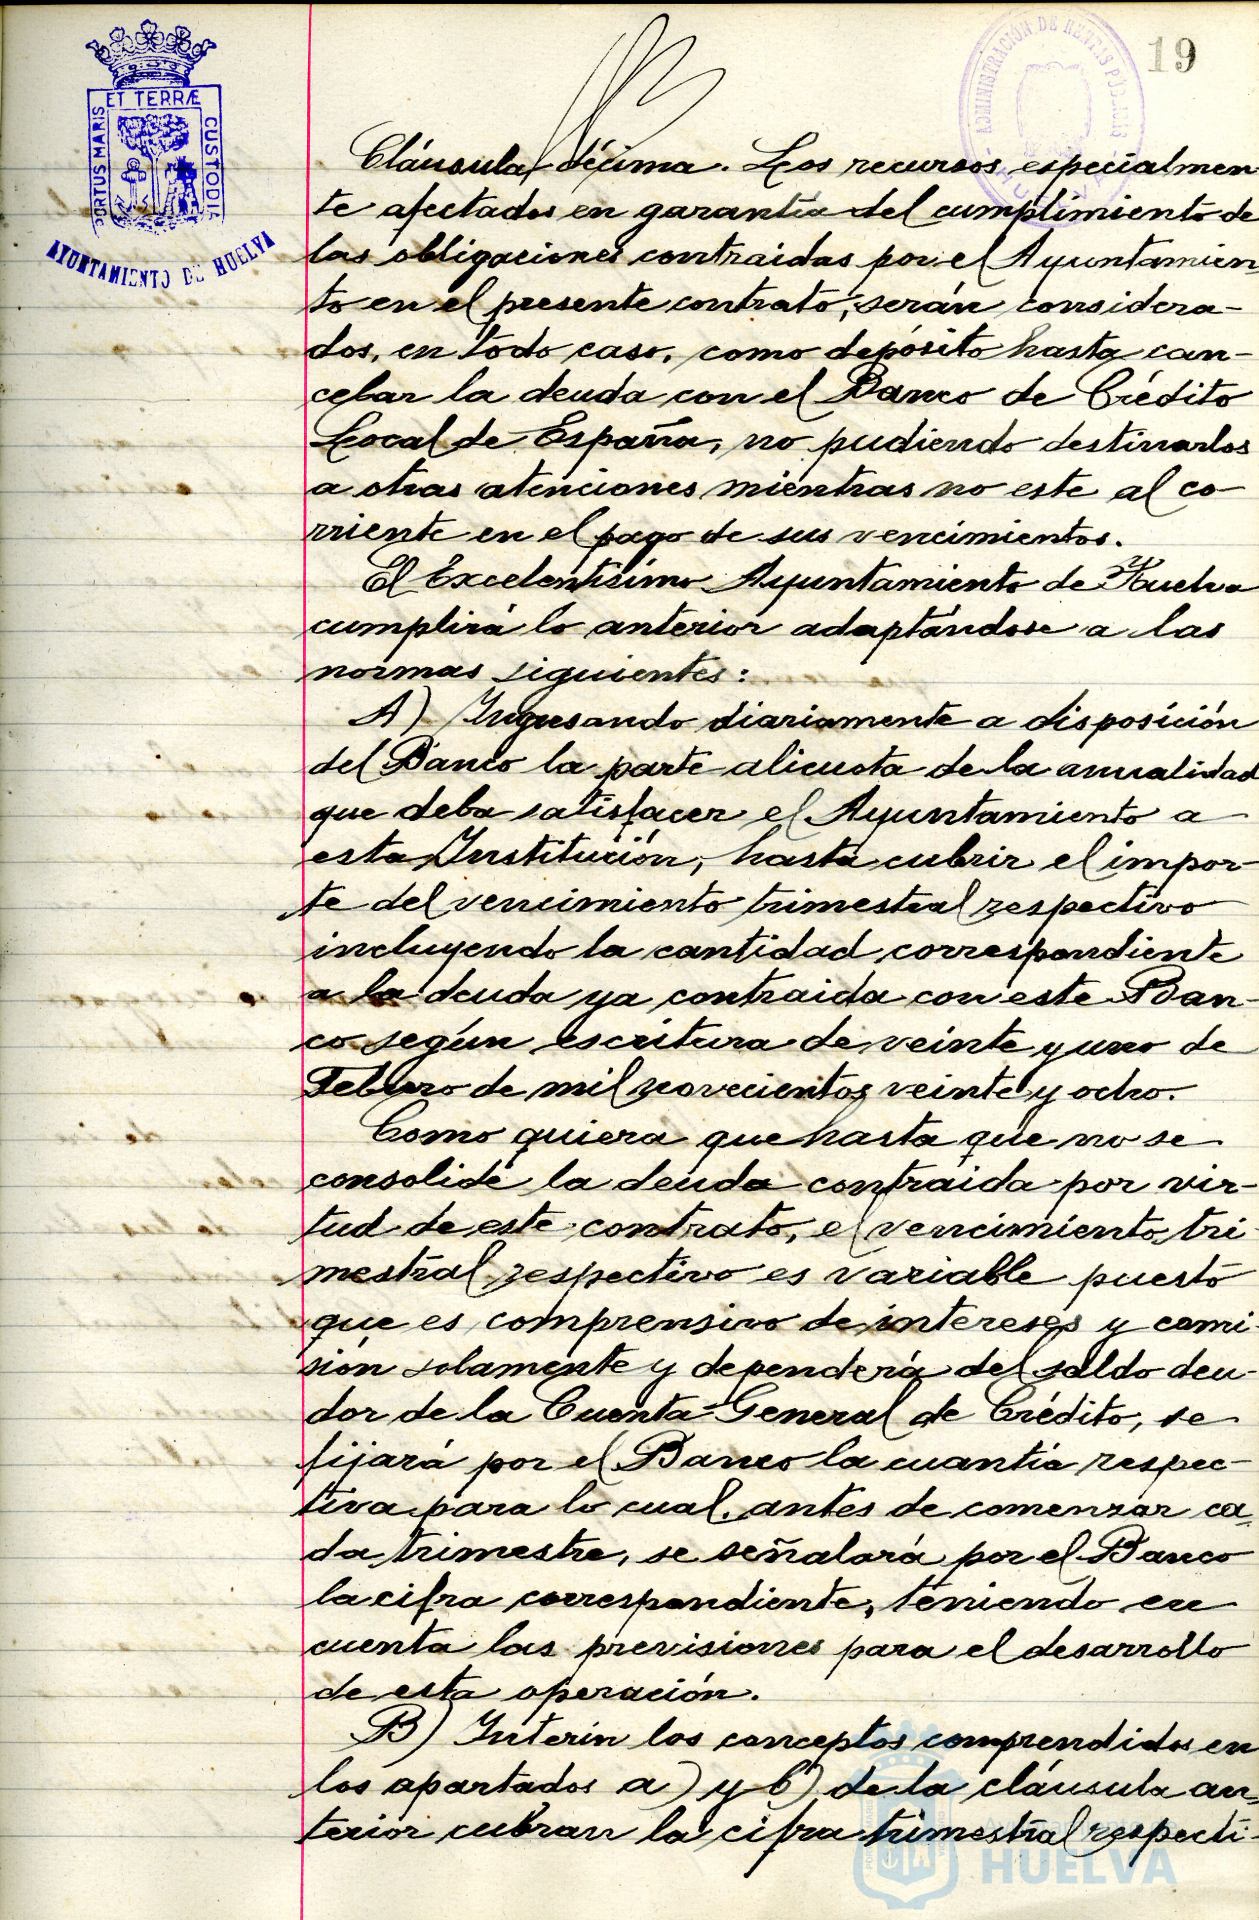 19
ET TERRÆ
PORTUS MARIS
CUSTODIA
AYUNTAMIENTO DE HUELVA
ADMINISTRACIÓN DE RENTAS PUBLICAS
Cláusula décima. Los recursos especialmen-
te afectados en garantía del cumplimiento de
las obligaciones contraidas por el Ayuntamien-
to en el presente contrato, serán considera-
dos, en todo caso, como depósito hasta can-
celar la deuda con el Banco de Crédito
Local de España, no pudiendo destinarlos
a otras atenciones mientras no este al co-
rriente en el pago de sus vencimientos.
El Excelentísimo Ayuntamiento de Huelva
cumplirá lo anterior adaptándose a las
normas siguientes:
A) Ingresando diariamente a disposición
del Banco la parte alicuota de la anualidad
que deba satisfacer el Ayuntamiento a
esta Institución, hasta cubrir el impor-
te del vencimiento trimestral respectivo
incluyendo la cantidad correspondiente
a la deuda ya contraida con este Ban-
co según escritura de veinte y uno de
Febrero de mil novecientos veinte y ocho.
Como quiera que hasta que no se
consolide la deuda contraida por vir-
tud de este contrato, el vencimiento tri-
mestral respectivo es variable puesto
que es comprensivo de intereses y comi-
sión solamente y dependerá del saldo deu-
dor de la Cuenta General de Crédito, se
fijará por el Banco la cuantía respec-
tiva para lo cual, antes de comenzar ca-
da trimestre, se señalará por el Banco
la cifra correspondiente, teniendo en
cuenta las previsiones para el desarrollo
de esta operación.
B) Interin los conceptos comprendidos en
los apartados a) y b) de la cláusula an-
terior cubran la cifra trimestral respecti-
HUELVA